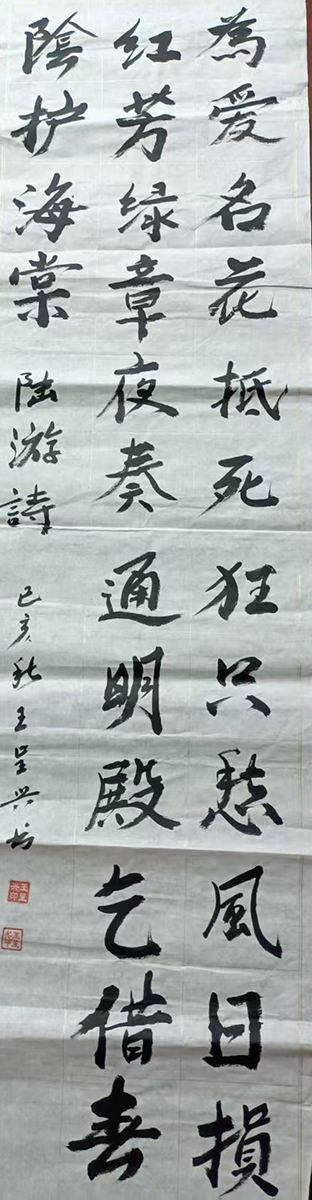 為爱名花抵死狂只愁風日損
红芳绿章夜奏通明殿乞借春
陰护海棠 陆游詩 己亥秋王呈兴书